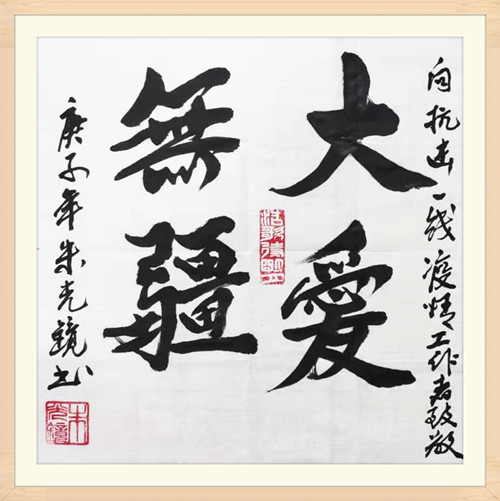 向抗击一线疫情工作者致敬
大愛
無疆
庚子年朱光镜书
朱光鏡